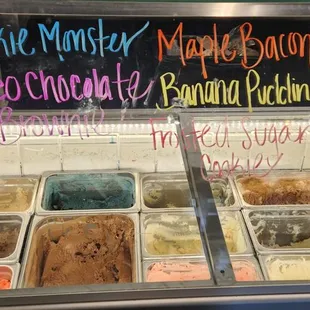 kie Monster
Maple Bacon
o Chocolate
Brownie
Banana Puddin
Frosted Sugar
Cookie